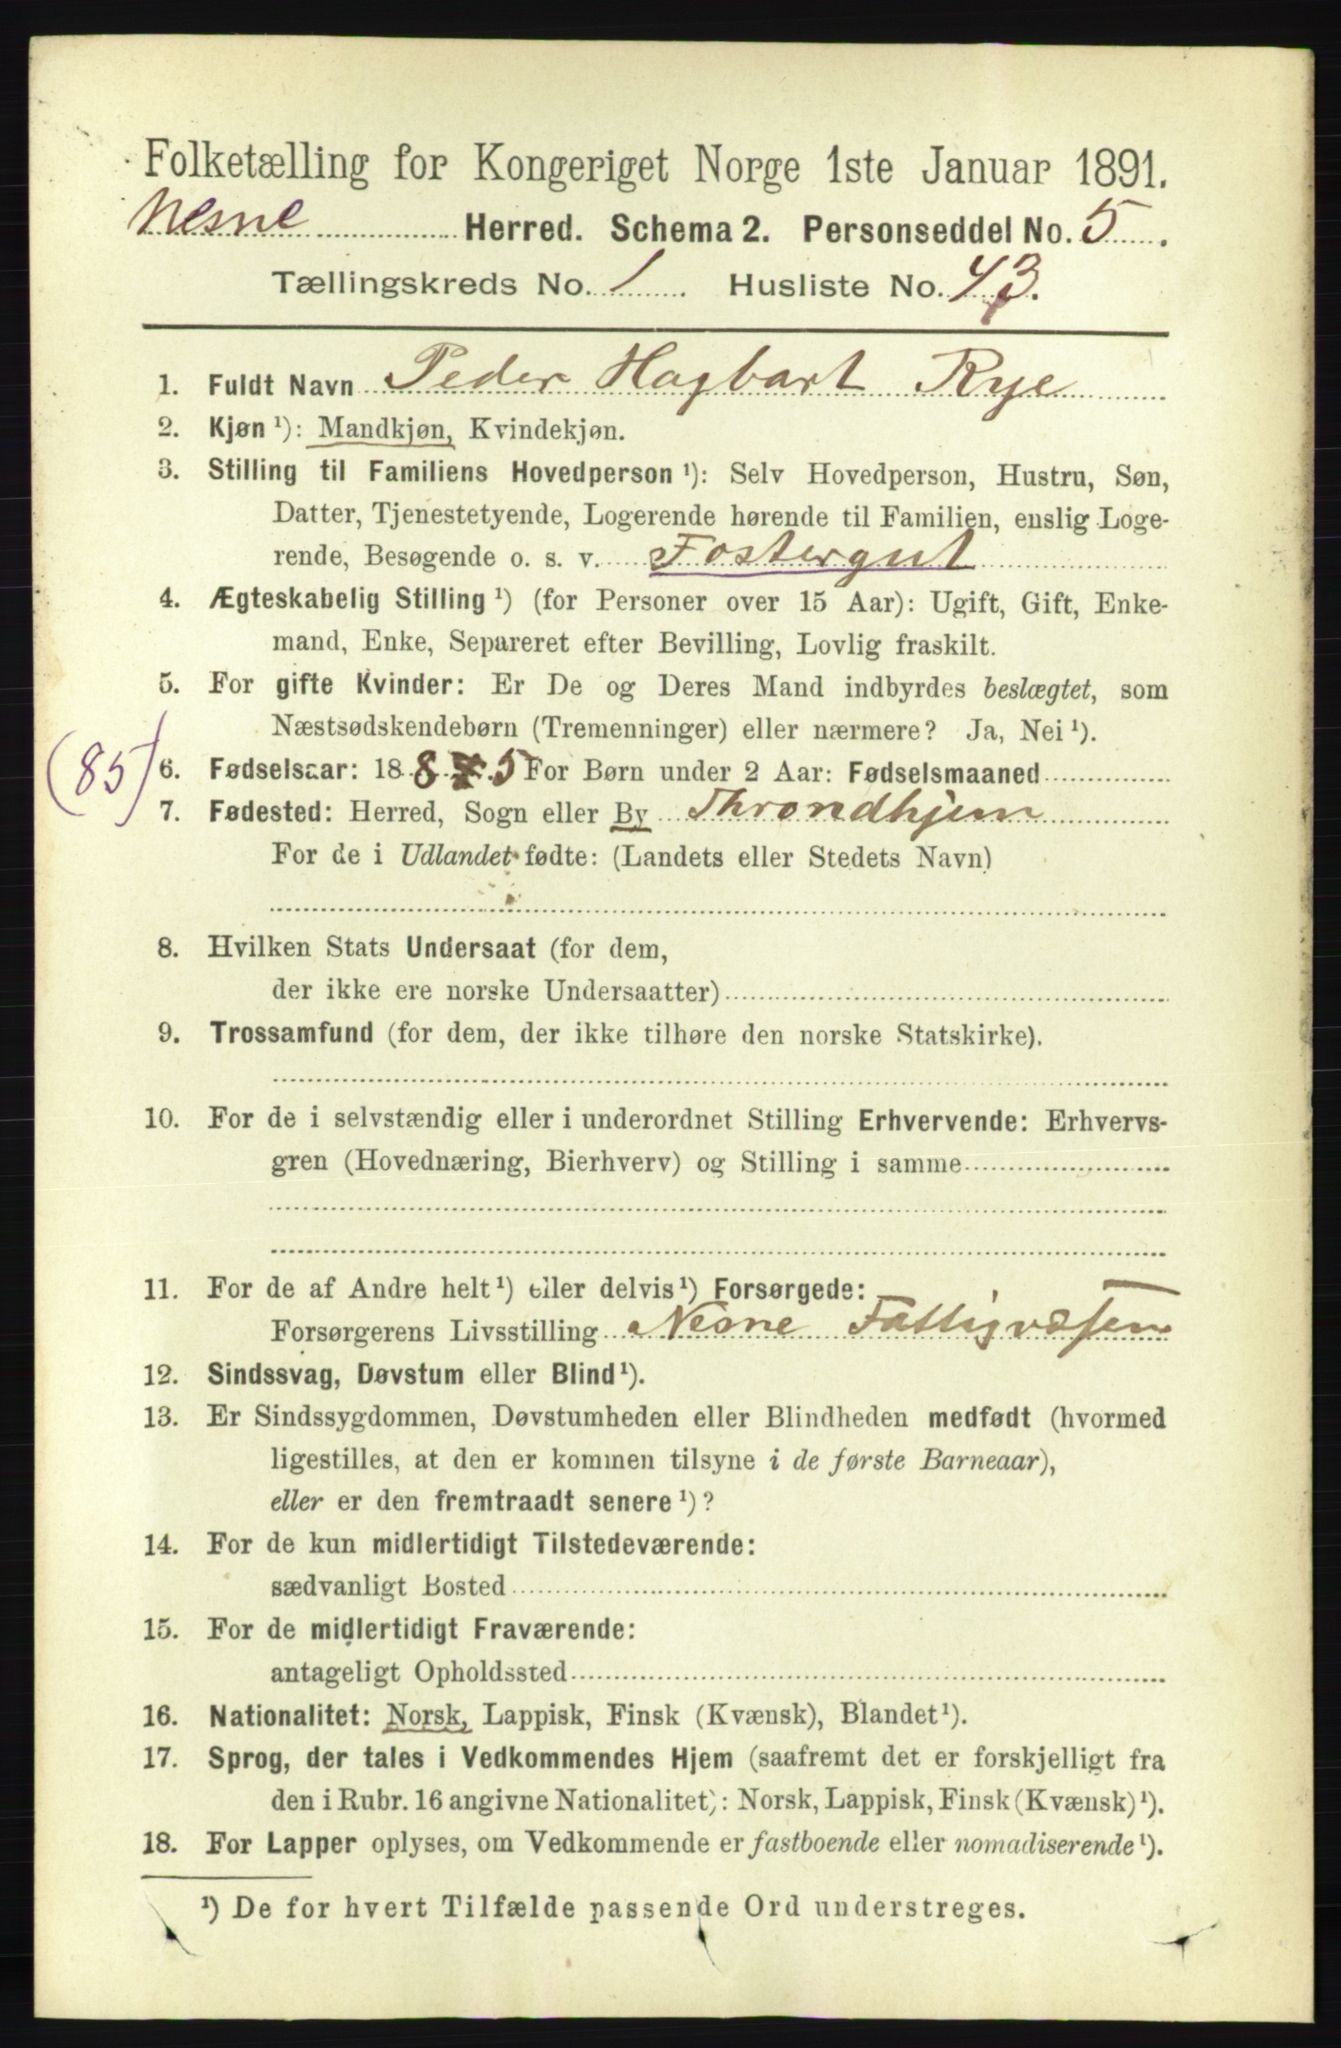 Folketælling for Kongeriget Norge 1ste Januar 1891.
Nesne Herred. Schema 2. Personseddel No. 5.
Tællingskreds No. 1. Husliste No. 43.
1. Fuldt Navn Peder Hagbart Rye
2. Kjøn ¹): Mandkjøn, Kvindekjøn.
3. Stilling til Familiens Hovedperson ¹): Selv Hovedperson, Hustru, Søn,
Datter, Tjenestetyende, Logerende hørende til Familien, enslig Loge-
rende, Besøgende o. s. v. Fostergut
4. Ægteskabelig Stilling ¹) (for Personer over 15 Aar): Ugift, Gift, Enke-
mand, Enke, Separeret efter Bevilling, Lovlig fraskilt.
5. For gifte Kvinder: Er De og Deres Mand indbyrdes beslægtet, som
Næstsødskendebørn (Tremenninger) eller nærmere? Ja, Nei ¹).
(85) 6. Fødselsaar: 18 8 5 For Børn under 2 Aar: Fødselsmaaned
7. Fødested: Herred, Sogn eller By Throndhjem
For de i Udlandet fødte: (Landets eller Stedets Navn)
8. Hvilken Stats Undersaat (for dem,
der ikke ere norske Undersaatter)
9. Trossamfund (for dem, der ikke tilhøre den norske Statskirke).
10. For de i selvstændig eller i underordnet Stilling Erhvervende: Erhvervs-
gren (Hovednæring, Bierhverv) og Stilling i samme
11. For de af Andre helt ¹) eller delvis ¹) Forsørgede:
Forsørgerens Livsstilling Nesne Fattigvæsen
12. Sindssvag, Døvstum eller Blind ¹).
13. Er Sindssygdommen, Døvstumheden eller Blindheden medfødt (hvormed
ligestilles, at den er kommen tilsyne i de første Barneaar),
eller er den fremtraadt senere ¹)?
14. For de kun midlertidigt Tilstedeværende:
sædvanligt Bosted
15. For de midlertidigt Fraværende:
antageligt Opholdssted
16. Nationalitet: Norsk, Lappisk, Finsk (Kvænsk), Blandet ¹).
17. Sprog, der tales i Vedkommendes Hjem (saafremt det er forskjelligt fra
den i Rubr. 16 angivne Nationalitet): Norsk, Lappisk, Finsk (Kvænsk) ¹).
18. For Lapper oplyses, om Vedkommende er fastboende eller nomadiserende ¹).
¹) De for hvert Tilfælde passende Ord understreges.